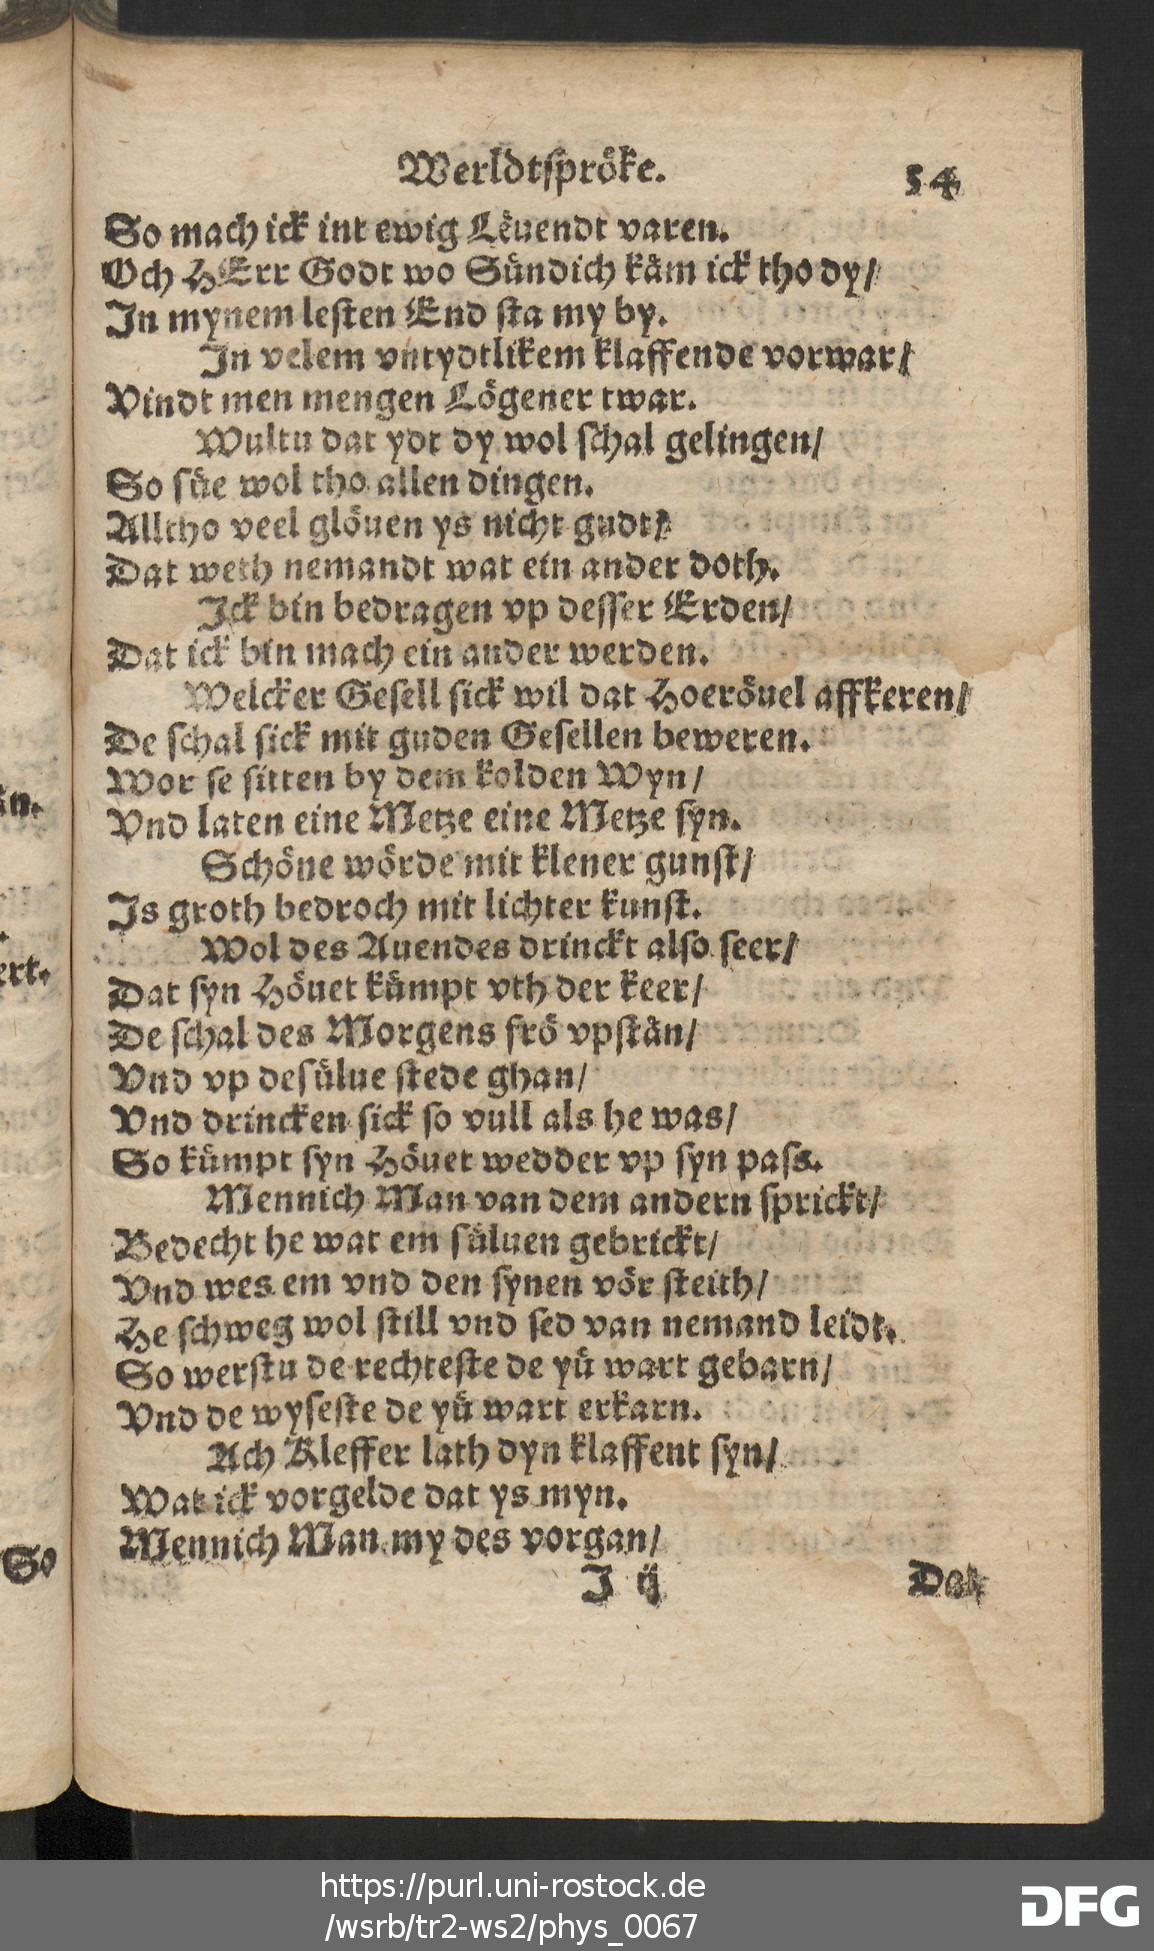 Werldtspröke. 54
So mach ick int ewig Lëuendt varen.
Och HErr Godt wo Sündich käm ick tho dy/
In mynem lesten End sta my by.
In velem vntydtlikem klaffende vorwar/
Vindt men mengen Lögener twar.
Wultu dat ydt dy wol schal gelingen/
So süe wol tho allen dingen.
Alltho veel glöuen ys nicht gudt/
Dat weth nemandt wat ein ander doth.
Ick bin bedragen vp desser Erden/
Dat ick bin mach ein ander werden.
Welcker Gesell sick wil dat Hoeröuel affkeren/
De schal sick mit guden Gesellen beweren.
Wor se sitten by dem kolden Wyn/
Vnd laten eine Metze eine Metze syn.
Schöne wörde mit klener gunst/
Is groth bedroch mit lichter kunst.
Wol des Auendes drinckt also seer/
Dat syn Höuet kümpt vth der keer/
De schal des Morgens frö vpstän/
Vnd vp desülue stede ghan/
Vnd drincken sick so vull als he was/
So kümpt syn Höuet wedder vp syn pass.
Mennich Man van dem andern sprickt/
Bedecht he wat em süluen gebrickt/
Vnd wes em vnd den synen vör steith/
He schweg wol still vnd sed van nemand leidt.
So werstu de rechteste de yü wart gebarn/
Vnd de wyseste de yü wart erkarn.
Ach Kleffer lath dyn klaffent syn/
Wat ick vorgelde dat ys myn.
Mennich Man my des vorgan/
I ij Dat
än.
ert.
So
https://purl.uni-rostock.de
/wsrb/tr2-ws2/phys_0067
DFG